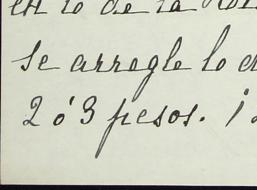 en lo de la
se arregle lo
2 ó 3 pesos. ¡